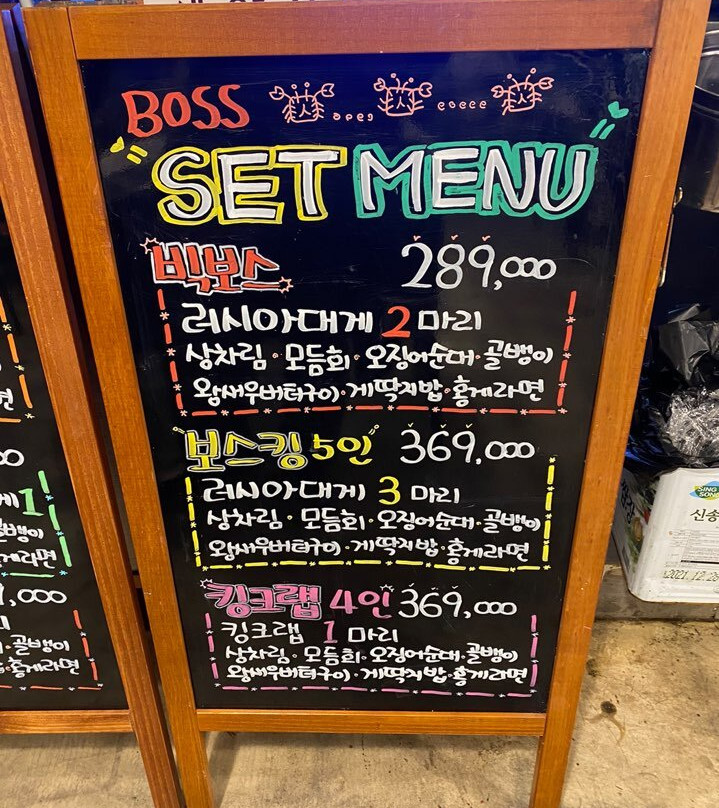 BOSS
SET MENU
빅보스 289,000
러시아대게 2 마리
상차림·모듬회·오징어순대·골뱅이
왕새우버터구이·게딱지밥·홍게라면
보스킹 5인 369,000
러시아대게 3 마리
상차림·모듬회·오징어순대·골뱅이
왕새우버터구이·게딱지밥·홍게라면
킹크랩 4인 369,000
킹크랩 1 마리
상차림·모듬회·오징어순대·골뱅이
왕새우버터구이·게딱지밥·홍게라면
게 1
골뱅이
홍게라면
골뱅이
홍게라면
SING SONG
신송